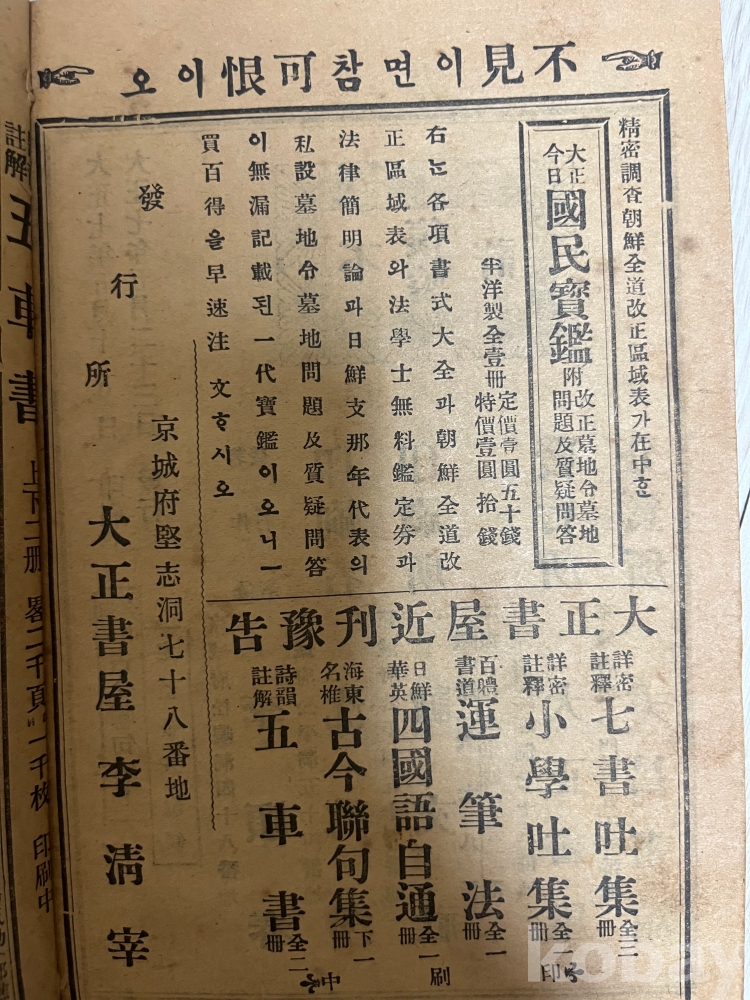 不見이면참可恨이오
精密調査朝鮮全道改正區域表가在中ᄒᆞᆫ
大正今日 國民寶鑑 附 改正墓地令墓地問題及質疑問答
半洋製全壹冊 定價壹圓五十錢 特價壹圓拾錢
右ᄂᆞᆫ各項書式大全과朝鮮全道改
正區域表와法學士無料鑑定券과
法律簡明論과日鮮支那年代表의
私設墓地令墓地問題及質疑問答
이無漏記載된一代寶鑑이오니一
買百得을早速注文ᄒᆞ시오
發行所
京城府堅志洞七十八番地
大正書屋 李淸宰
大正書屋近刊豫告
詳密註釋 七書吐集 全三冊
詳密註釋 小學吐集 全一冊
百體書道 運筆法 全一冊
日鮮華英 四國語自通 全一冊
海東名椎 古今聯句集 下一冊
詩韻註解 五車書 全二冊
印刷中
註解 五車書 上下二冊 畧二千頁 一千枚 印刷中
kobay